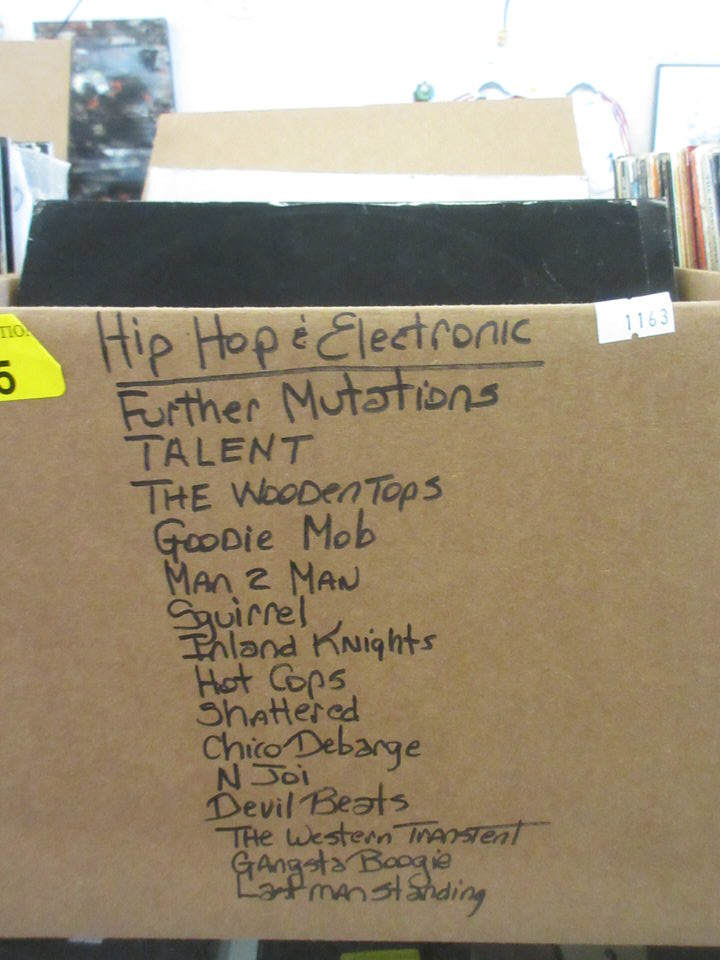 no.
5
1163
Hip Hop & Electronic
Further Mutations
TALENT
THE WOODEN TOPS
GOODIE Mob
MAN 2 MAN
Squirrel
Inland Knights
Hot Cops
Shattered
Chico Debarge
N Joi
Devil Beats
THE Western Transient
GAngsta Boogie
Last man standing